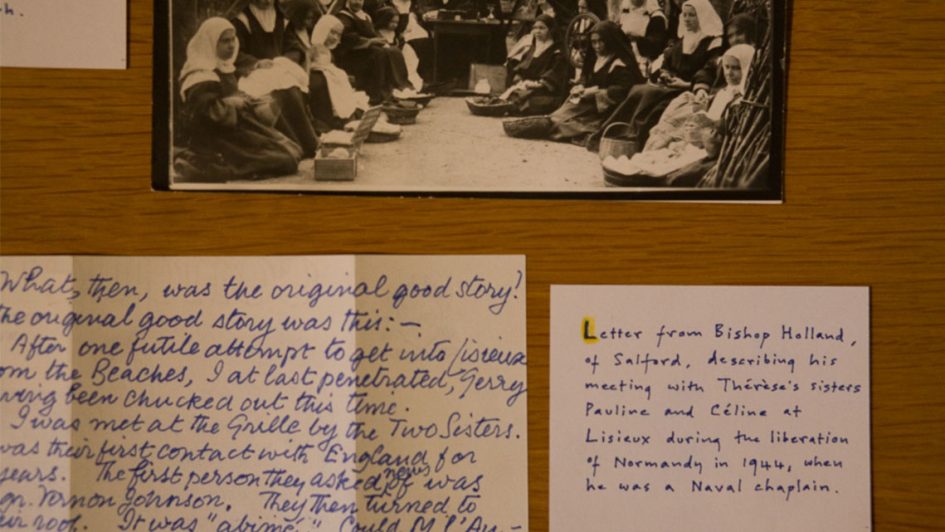 h.
What, then, was the original good story?
the original good story was this:—
After one futile attempt to get into Lisieux
om the Beaches, I at last penetrated, Gerry
ving been chucked out this time.
I was met at the Grille by the Two Sisters.
was their first contact with England for
years. The first person they asked news of was
gr. Vernon Johnson. They then turned to
eir roof. It was "abimé." Could M l'Au-
Letter from Bishop Holland,
of Salford, describing his
meeting with Thérèse's sisters
Pauline and Céline at
Lisieux during the liberation
of Normandy in 1944, when
he was a Naval chaplain.